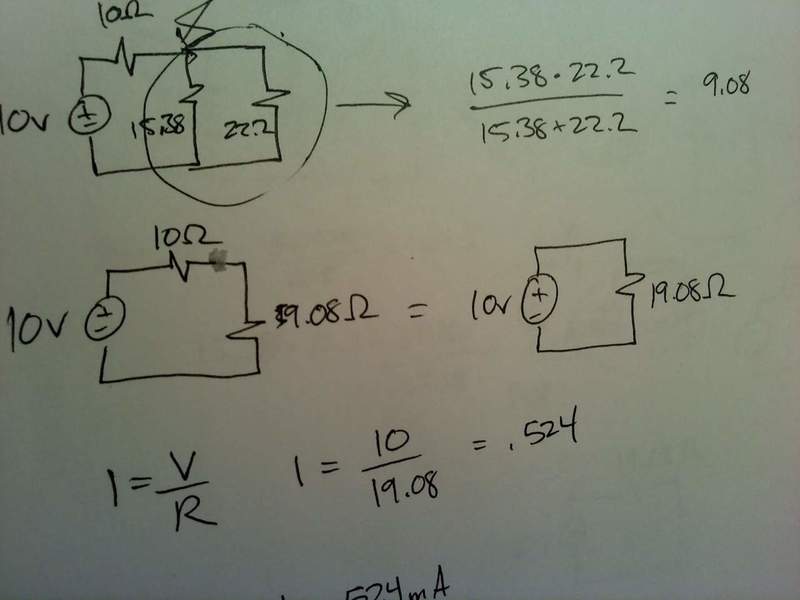 10Ω
10v
15.38
22.2
15.38 · 22.2 / 15.38 + 22.2 = 9.08
10Ω
10v
9.08Ω
=
10v
19.08Ω
I = V / R
I = 10 / 19.08 = .524
.524mA